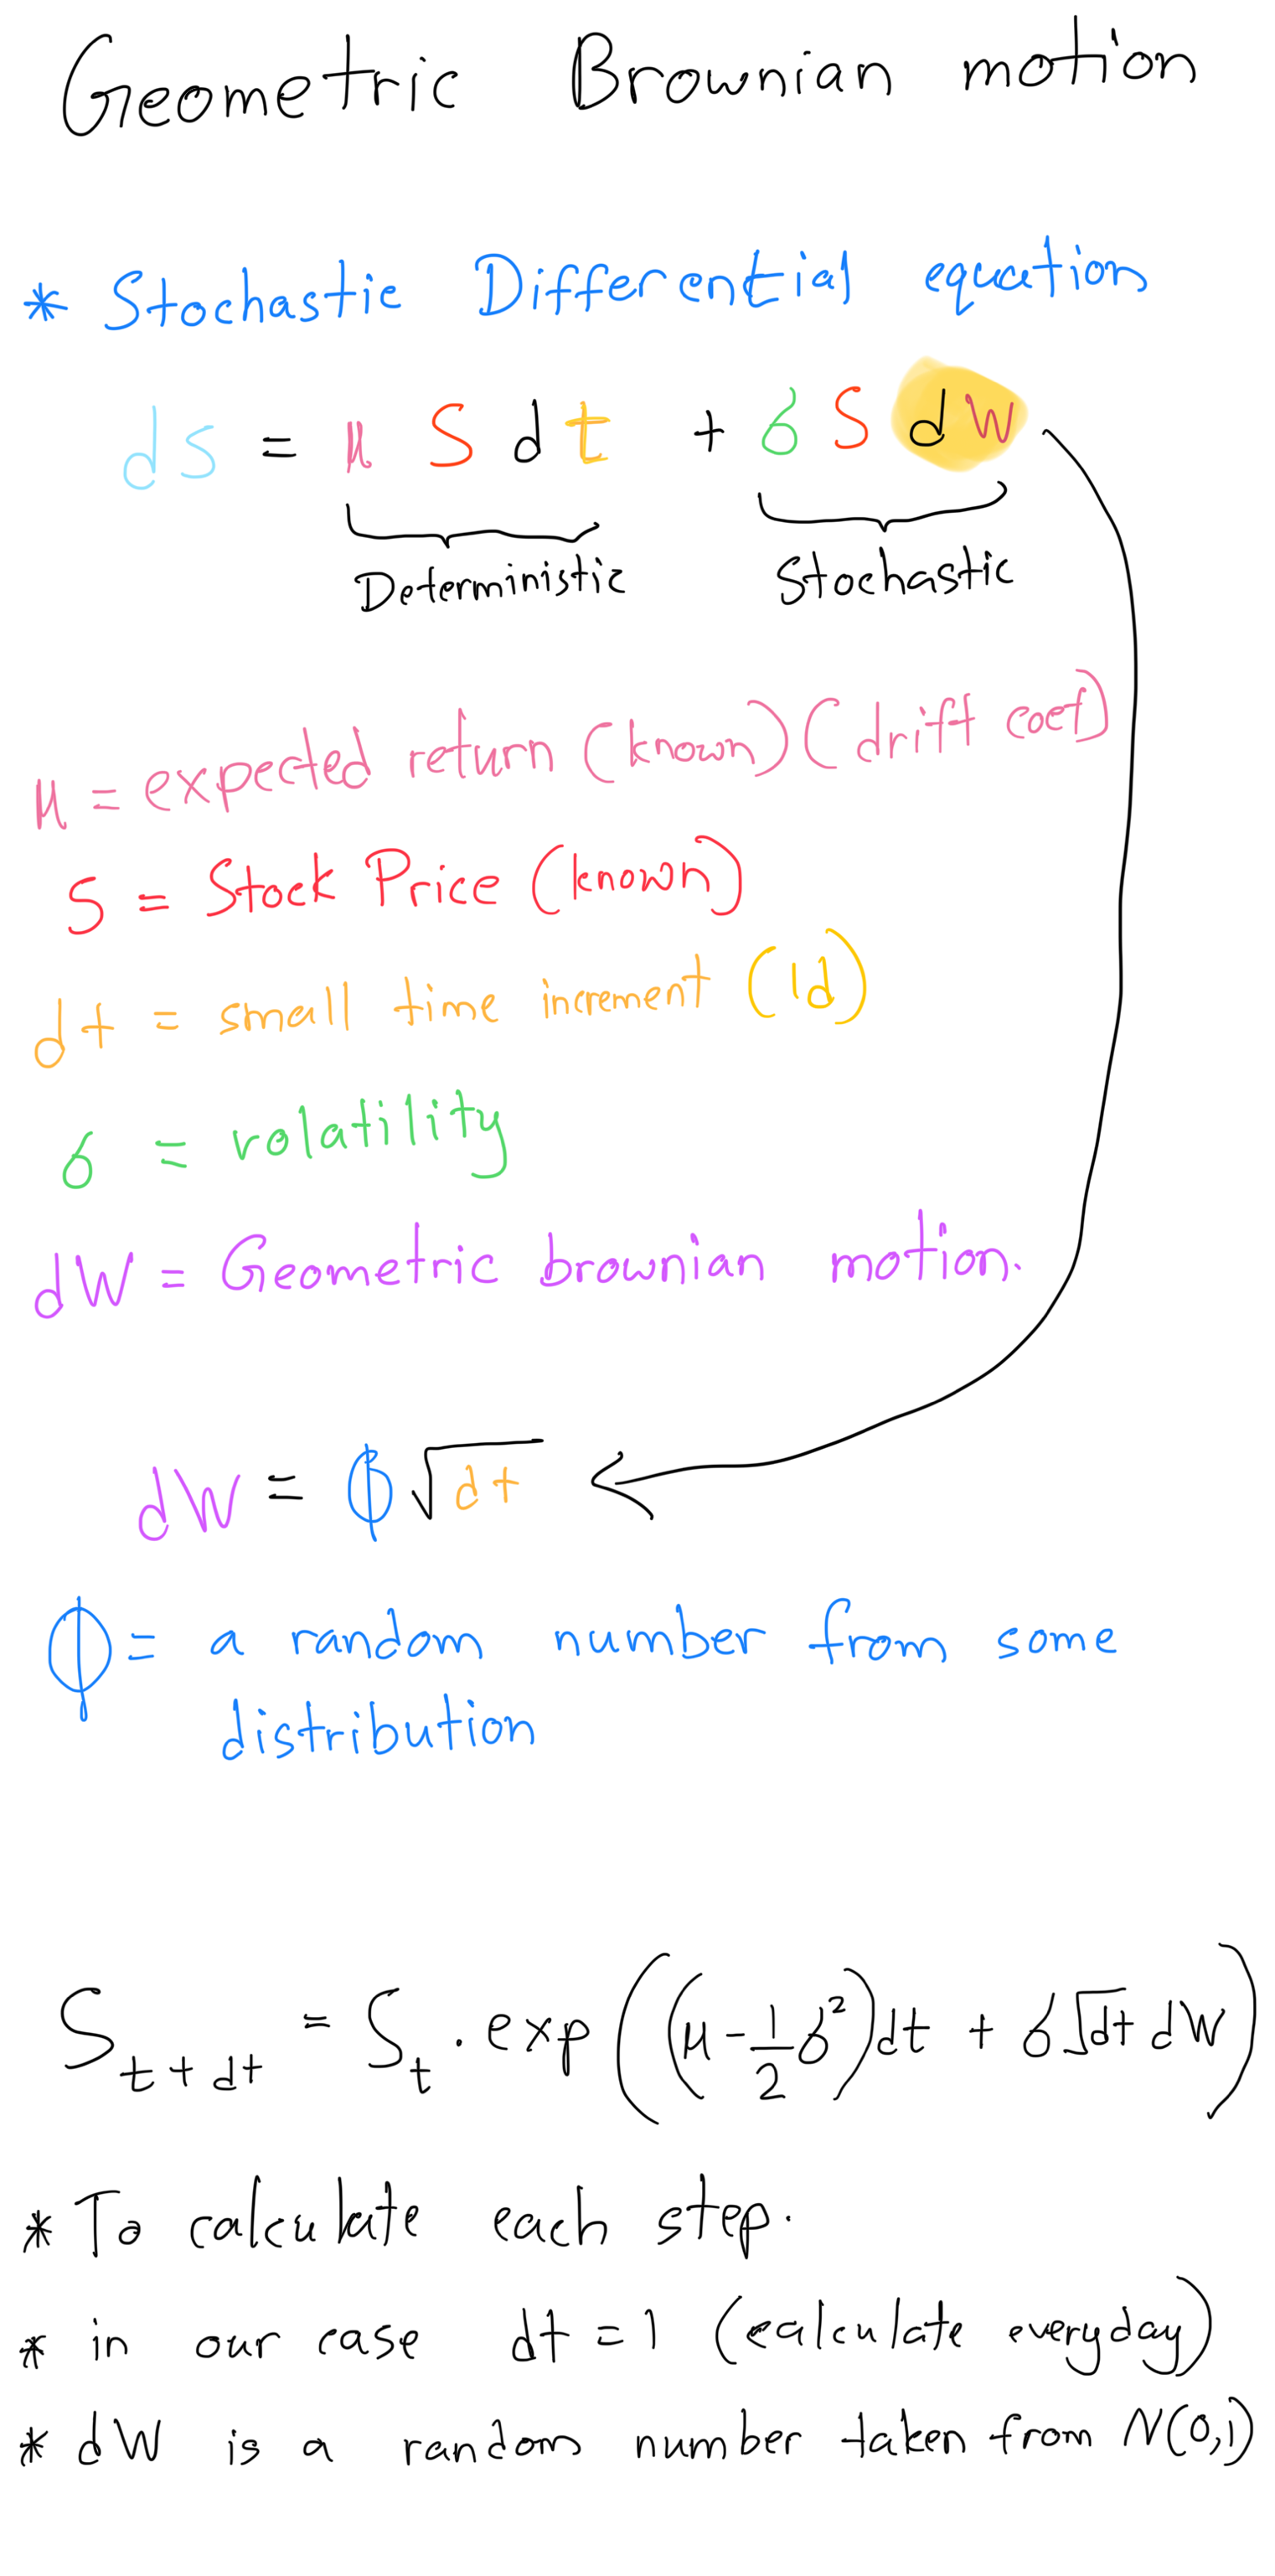 Geometric Brownian motion
* Stochastic Differential equation
dS = μ S dt + σ S dW
Deterministic Stochastic
μ = expected return (known) (drift coef)
S = Stock Price (known)
dt = small time increment (1d)
σ = volatility
dW = Geometric brownian motion.
dW = ϕ √dt
ϕ = a random number from some
distribution
S_{t+dt} = S_t . exp((μ - 1/2 σ²)dt + σ √dt dW)
* To calculate each step.
* in our case dt = 1 (calculate everyday)
* dW is a random number taken from N(0,1)